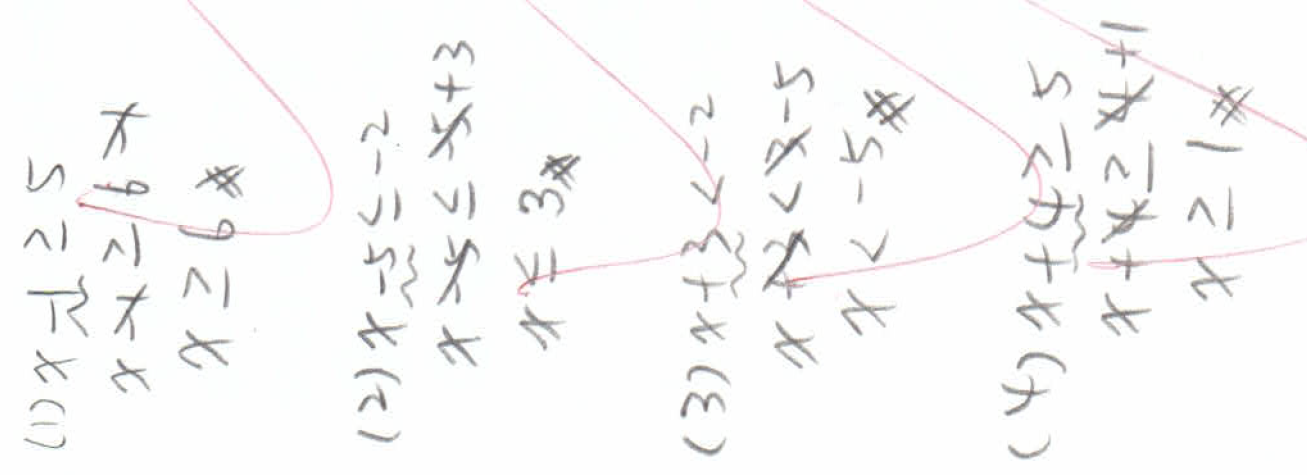 (1) x-1 ≥ 5
x-1 ≥ 6-1
x ≥ 6 #
(2) x-5 ≤ -2
x-5 ≤ -5+3
x ≤ 3 #
(3) x+3 < -2
x+3 < 3-5
x < -5 #
(4) x+4 ≥ 5
x+4 ≥ 4+1
x ≥ 1 #